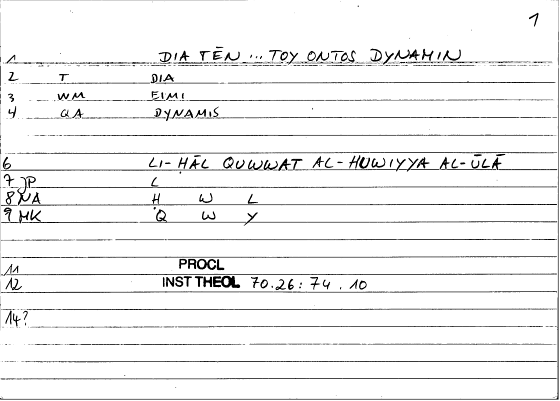 1
1 DIA TĒN ... TOY ONTOS DYNAMIN
2 T DIA
3 WM EIMI
4 QA DYNAMIS
6 LI-ḤĀL QUWWAT AL-HUWIYYA AL-ŪLĀ
7 JP L
8 NA Ḥ W L
9 HK Q W Y
11 PROCL
12 INST THEOL 70.26: 74.10
14?